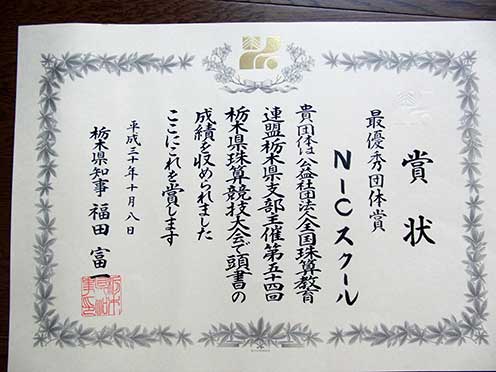 賞状
最優秀団体賞
NICスクール
貴団体は公益社団法人全国珠算教育
連盟栃木県支部主催第五十四回
栃木県珠算競技大会で頭書の
成績を収められました
ここにこれを賞します
平成三十年十月八日
栃木県知事 福田富一